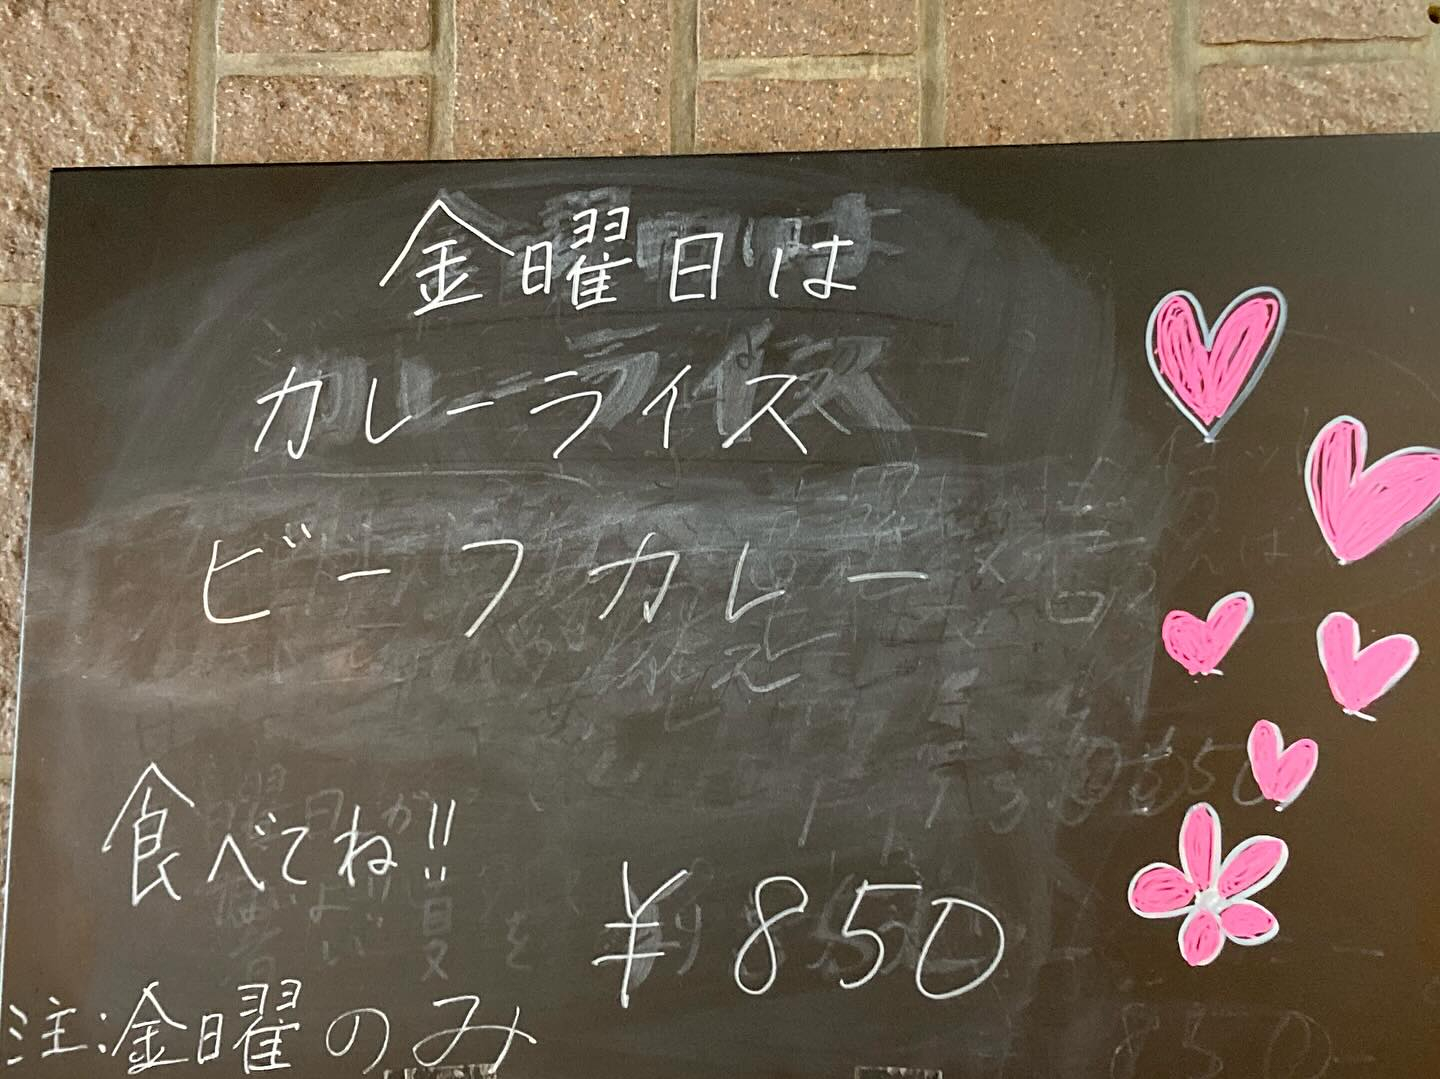 金曜日は
カレーライス
ビーフカレー
食べてね!!
¥850
注:金曜のみ